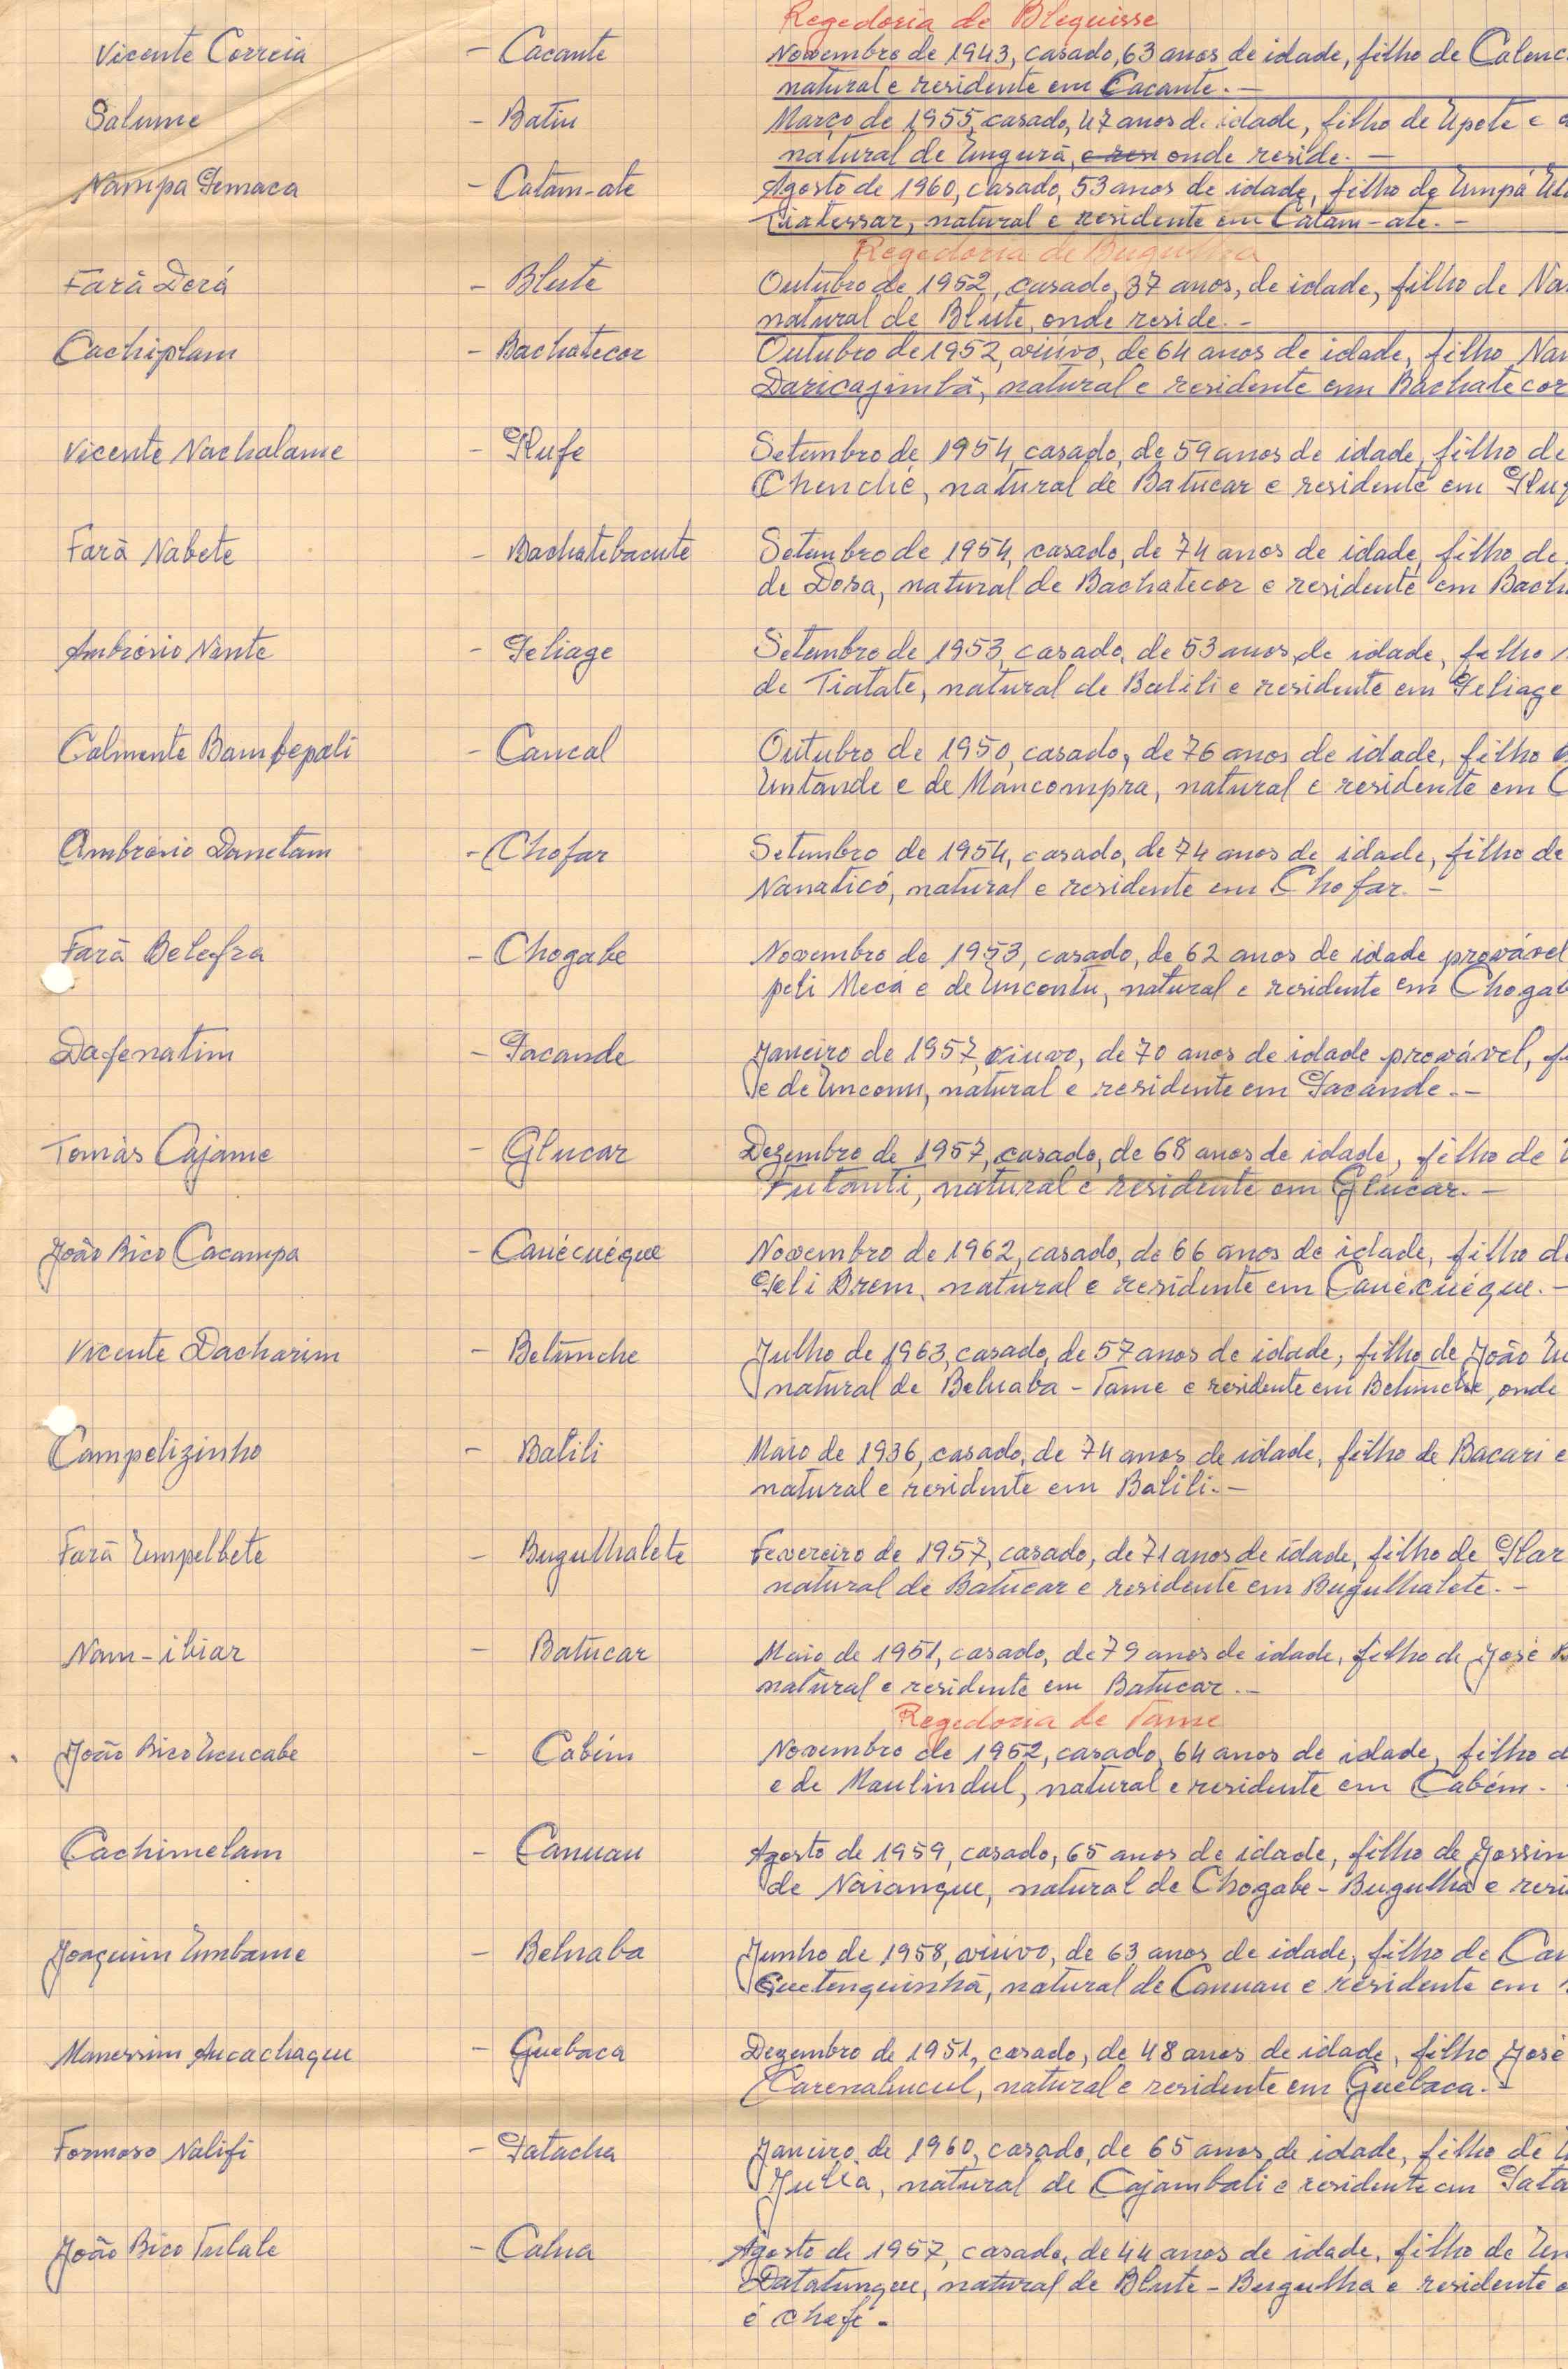 Regedoria de Blequisse
Vicente Correia - Cacante Novembro de 1943, casado, 63 anos de idade, filho de Calenc
natural e residente em Cacante. -
Salume - Batin Março de 1955, casado, 47 anos de idade, filho de Upete e
natural de Ungurã, e resi onde reside. -
Nampa - Catam-ate Agosto de 1960, casado, 53 anos de idade, filho de Umpá
Tiatessar, natural e residente em Catam-ate. -
Regedoria de Bugulha
Farã Derá - Blute Outubro de 1952, casado, 37 anos, de idade, filho de Na
natural de Blute, onde reside. -
Cachiplam - Bachatecor Outubro de 1952, viúvo, de 64 anos de idade, filho Nam
Daricajimbã, natural e residente em Bachatecor
Vicente Nachalame - Setembro de 1954, casado, de 59 anos de idade, filho de
Chenché, natural de Batucar e residente em
Farã Nabete - Bachatebacute Setembro de 1954, casado, de 74 anos de idade, filho de
de Dosa, natural de Bachatecor e residente em Bach
Ambrósio Nante - Peliage Setembro de 1953, casado, de 53 anos de idade, filho
de Tiatate, natural de Balili e residente em Peliage
Calmente Bambepali - Cancal Outubro de 1950, casado, de 76 anos de idade, filho
Untande e de Mancompra, natural e residente em C
Ambrósio Danctam - Chofar Setembro de 1954, casado, de 74 anos de idade, filho de
Nanaticó, natural e residente em Chofar. -
Farã Belefra - Chogabe Novembro de 1953, casado, de 62 anos de idade provável
peli Mecá e de Uncontu, natural e residente em Chogab
Dafenatim - Pacande Janeiro de 1957, viuvo, de 70 anos de idade provável, f
e de Unconu, natural e residente em Pacande. -
Tomás Cajame - Glucar Dezembro de 1957, casado, de 68 anos de idade, filho de
Futanti, natural e residente em Glucar. -
João Bico Cacampa - Canécuéque Novembro de 1962, casado, de 66 anos de idade, filho de
Peli Brem, natural e residente em Canécuéque. -
Vicente Dacharim - Betimche Julho de 1963, casado, de 57 anos de idade, filho de João
natural de Beluaba - Tame e residente em Betimche, onde
Campelizinho - Balili Maio de 1936, casado, de 74 anos de idade, filho de Bacari e
natural e residente em Balili. -
Farã Umpelbete - Bugulhalete Fevereiro de 1957, casado, de 71 anos de idade, filho de
natural de Batucar e residente em Bugulhalete. -
Nam-ibiar - Batucar Maio de 1951, casado, de 79 anos de idade, filho de José
natural e residente em Batucar. -
Regedoria de Tame
João Bico Ucucabe - Cabém Novembro de 1952, casado, 64 anos de idade, filho d
e de Maulindul, natural e residente em Cabém. -
Cachimelam - Canuau Agosto de 1959, casado, 65 anos de idade, filho de Jossim
de Naiangue, natural de Chogabe - Bugulha e resi
Joaquim Umbame - Beluaba Junho de 1958, viúvo, de 63 anos de idade, filho de Ca
Guetenguinhã, natural de Canuau e residente em
Manessim Aucachaque - Guebaca Dezembro de 1951, casado, de 48 anos de idade, filho José
Carenalucul, natural e residente em Guebaca. -
Formoso Nalifi - Patacha Janeiro de 1960, casado, de 65 anos de idade, filho de
Julia, natural de Cajambali e residente em Pata
João Bico Tulale - Calua Agosto de 1957, casado, de 44 anos de idade, filho de Un
Datatungue, natural de Blute - Bugulha e residente
é chefe -